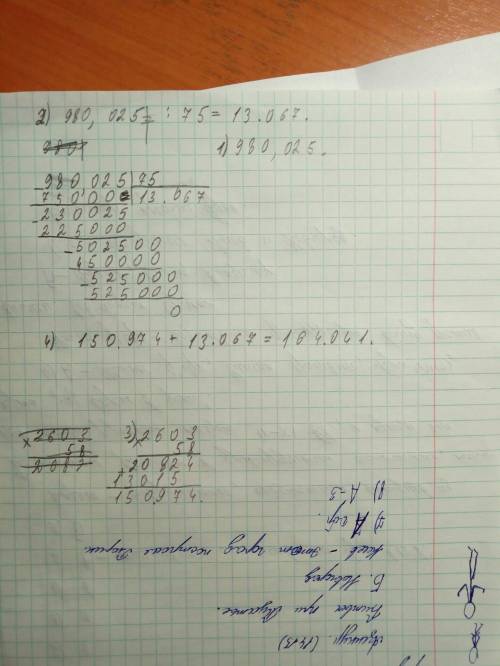 2) 980,025 : 75 = 13.067.
1) 980,025.
980.025 | 75
750000 | 13.067
230025
225000
502500
450000
525000
525000
0
4) 150.974 + 13.067 = 164.041.
2603
× 58
2087
3) × 2603
58
20824
+ 13015
150.974.
8) А-3
7) А
Киев -
Б. Новгород
Битва при
(1223)